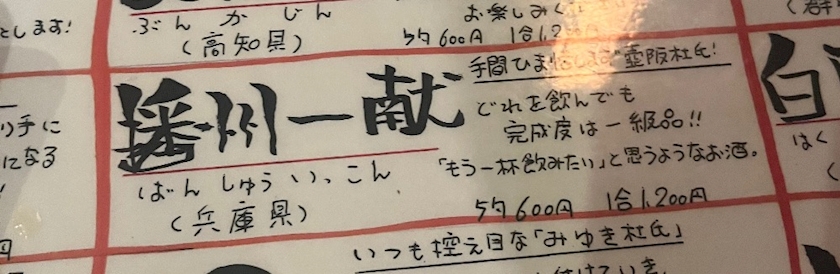 とします!
り手に
になる
ぶんかじん
(高知県)
お楽しみく
5勺600円 1合1,2
播州一献
ばんしゅういっこん
(兵庫県)
手間ひま 壺阪杜氏!
どれを飲んでも
完成度は一級品!!
「もう一杯飲みたい」と思うようなお酒。
5勺600円 1合1,200円
いつも控え目な「みゆき杜氏」
白
はく